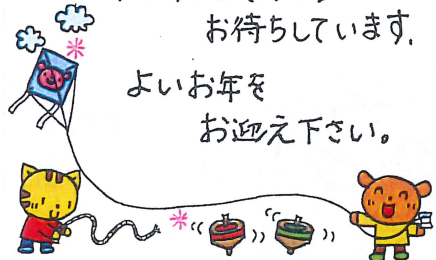 お待ちしています.
よいお年を
お迎え下さい。